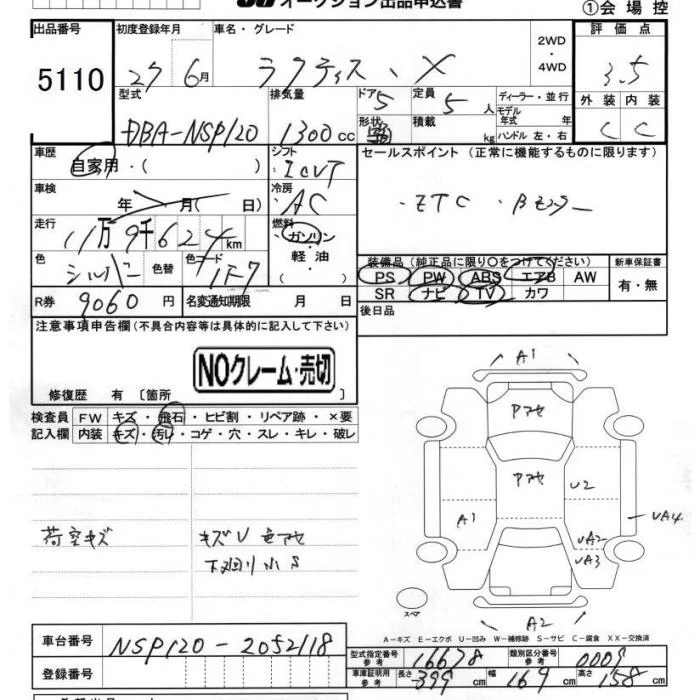 オークション出品申込書
①会場控
出品番号 初度登録年月 車名・グレード 評価点
5110 27 6月 ラクティス X 2WD・4WD 3.5
型式 排気量 ドア 5 定員 5人 ディーラー・並行 外装 内装
DBA-NSP120 1300cc 形状 積載 kg モデル年式 年 C C
ハンドル 左・右
車歴 自家用・( ) シフト ICVT セールスポイント (正常に機能するものに限ります)
車検 年 月( 日) 冷房 AC ・ETC ・Bモニター
走行 11万9千624km 燃料 ガソリン・軽油・
色 シルバー 色替 色コード 1F7
装備品 (純正品に限り○をつけてください) 新車保証書
PS PW ABS エアB AW 有・無
SR ナビ TV カワ
R券 9060円 名変通知期限 月 日 後日品
注意事項申告欄 (不具合内容等は具体的に記入して下さい)
NOクレーム・売切
修復歴 有 〔箇所 〕
検査員 FW キズ・飛石・ヒビ割・リペア跡・×要
記入欄 内装 キズ・汚れ・コゲ・穴・スレ・キレ・破レ
荷室キズ キズU 色アセ
下廻り小S
A1
Pアセ
Pアセ U2
A1 UA4
UA2
UA3
スペア A2
A-キズ E-エクボ U-凹み W-補修跡 S-サビ C-腐食 XX-交換済
車台番号 NSP120-2052118
型式指定番号 参考 16678 類別区分番号 参考 0009
登録番号 車庫証明用 参考 長さ 399cm 幅 169cm 高さ 158cm